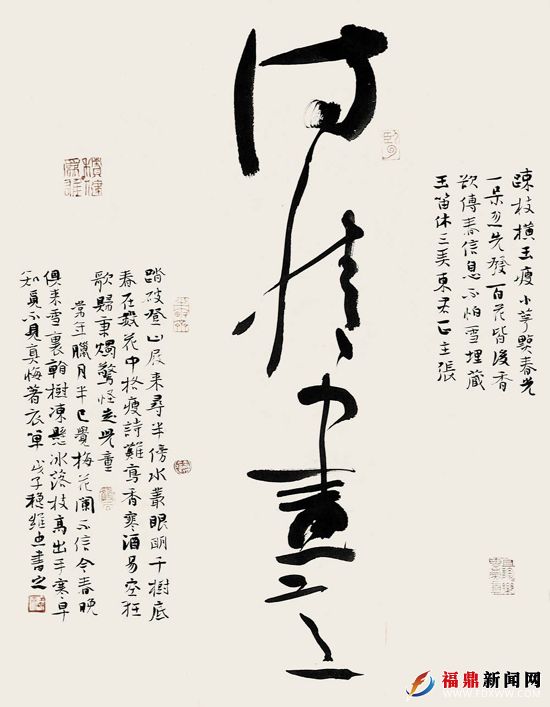 疎枝橫玉瘦小萼點春光
一朵忽先發百花皆後香
欲傳春信息不怕雪埋藏
玉笛休三弄東君正主張
诗情畫意
踏破登山屐來尋半傍水叢眼明千樹底
春在數花中格瘦詩難寫香寒酒易空狂
歌歸秉燭驚怪走兒童
常年臘月半已覺梅花闌不信今春晚
俱來雪裏看樹凍懸冰落枝高出手寒早
知覓不見真悔著衣單戊子維書之
福鼎新闻网
WWW.FDXWW.COM